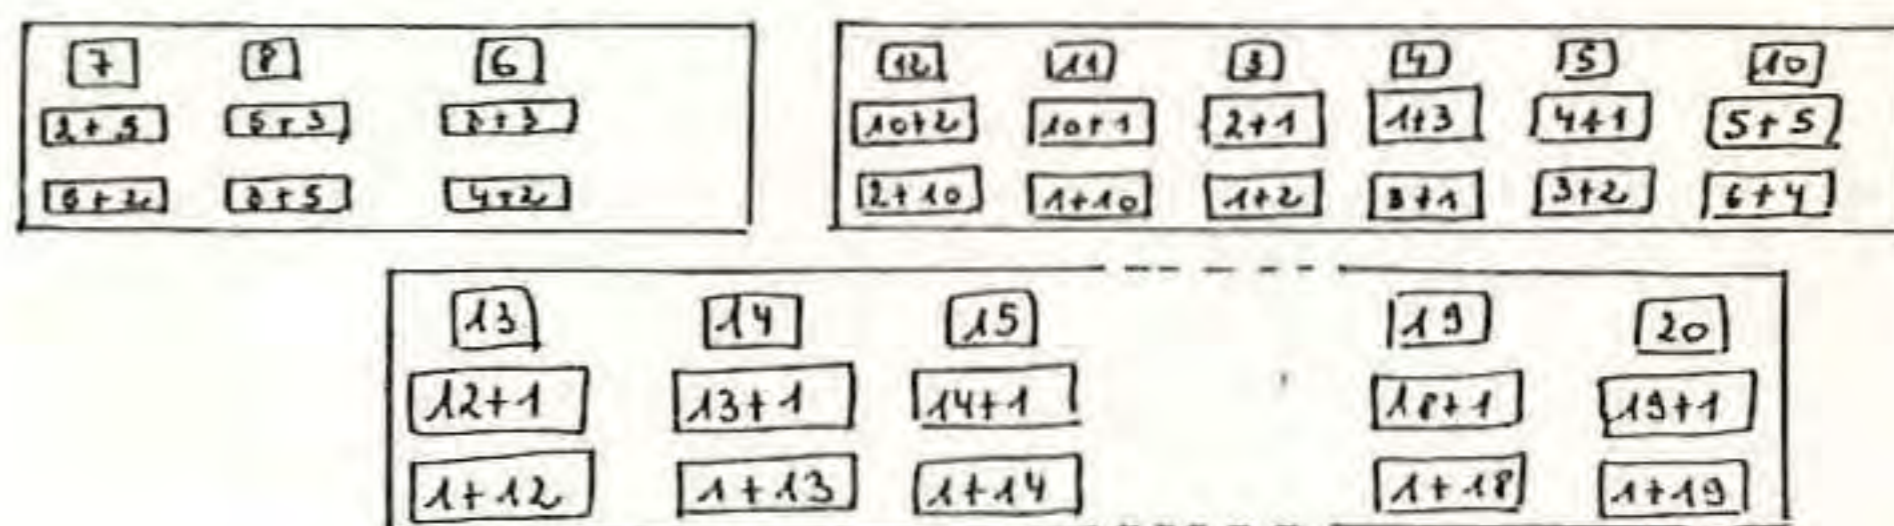 7 8 6
2+5 5+3 3+3
5+2 3+5 4+2
12 11 3 4 5 10
10+2 10+1 2+1 1+3 4+1 5+5
2+10 1+10 1+2 3+1 3+2 6+4
13 14 15 19 20
12+1 13+1 14+1 18+1 19+1
1+12 1+13 1+14 1+18 1+19